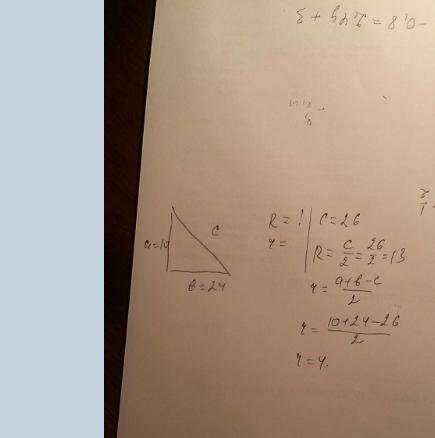 -0,8 = 2,4y + 3
a=10
c
b=24
R = ! C=26
r =
R = c/2 = 26/2 = 13
r = a+b-c/2
r = 10+24-26/2
r = 4.